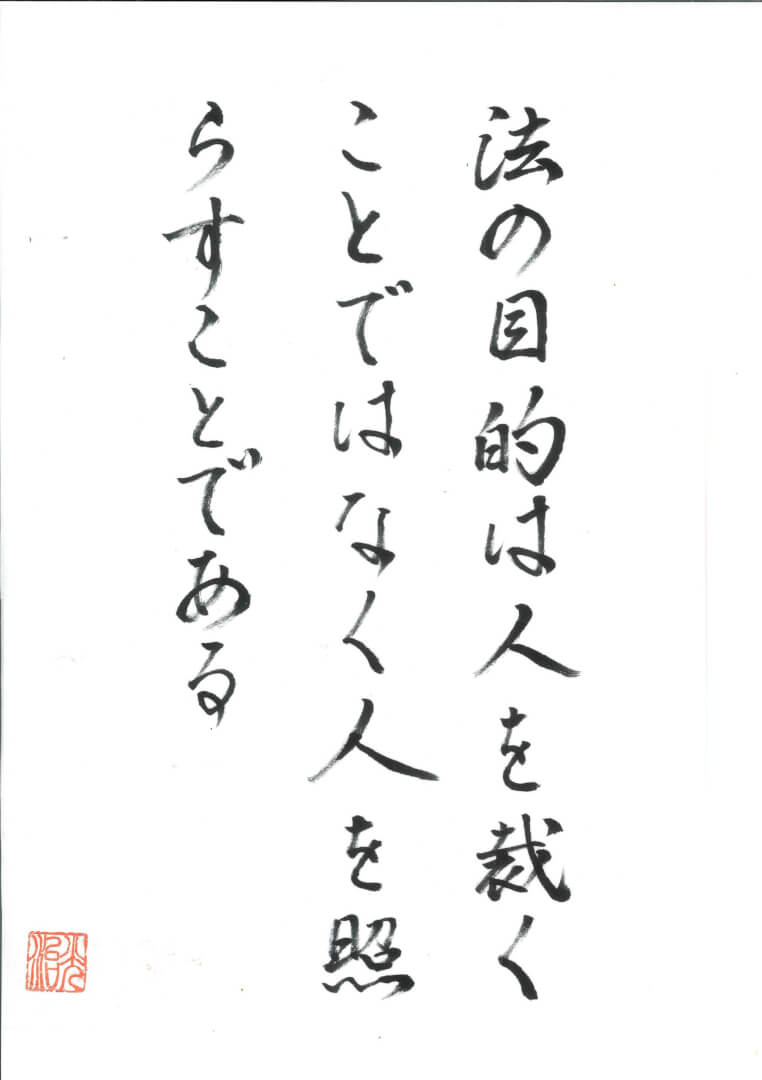 法の目的は人を裁く
ことではなく人を照
らすことである